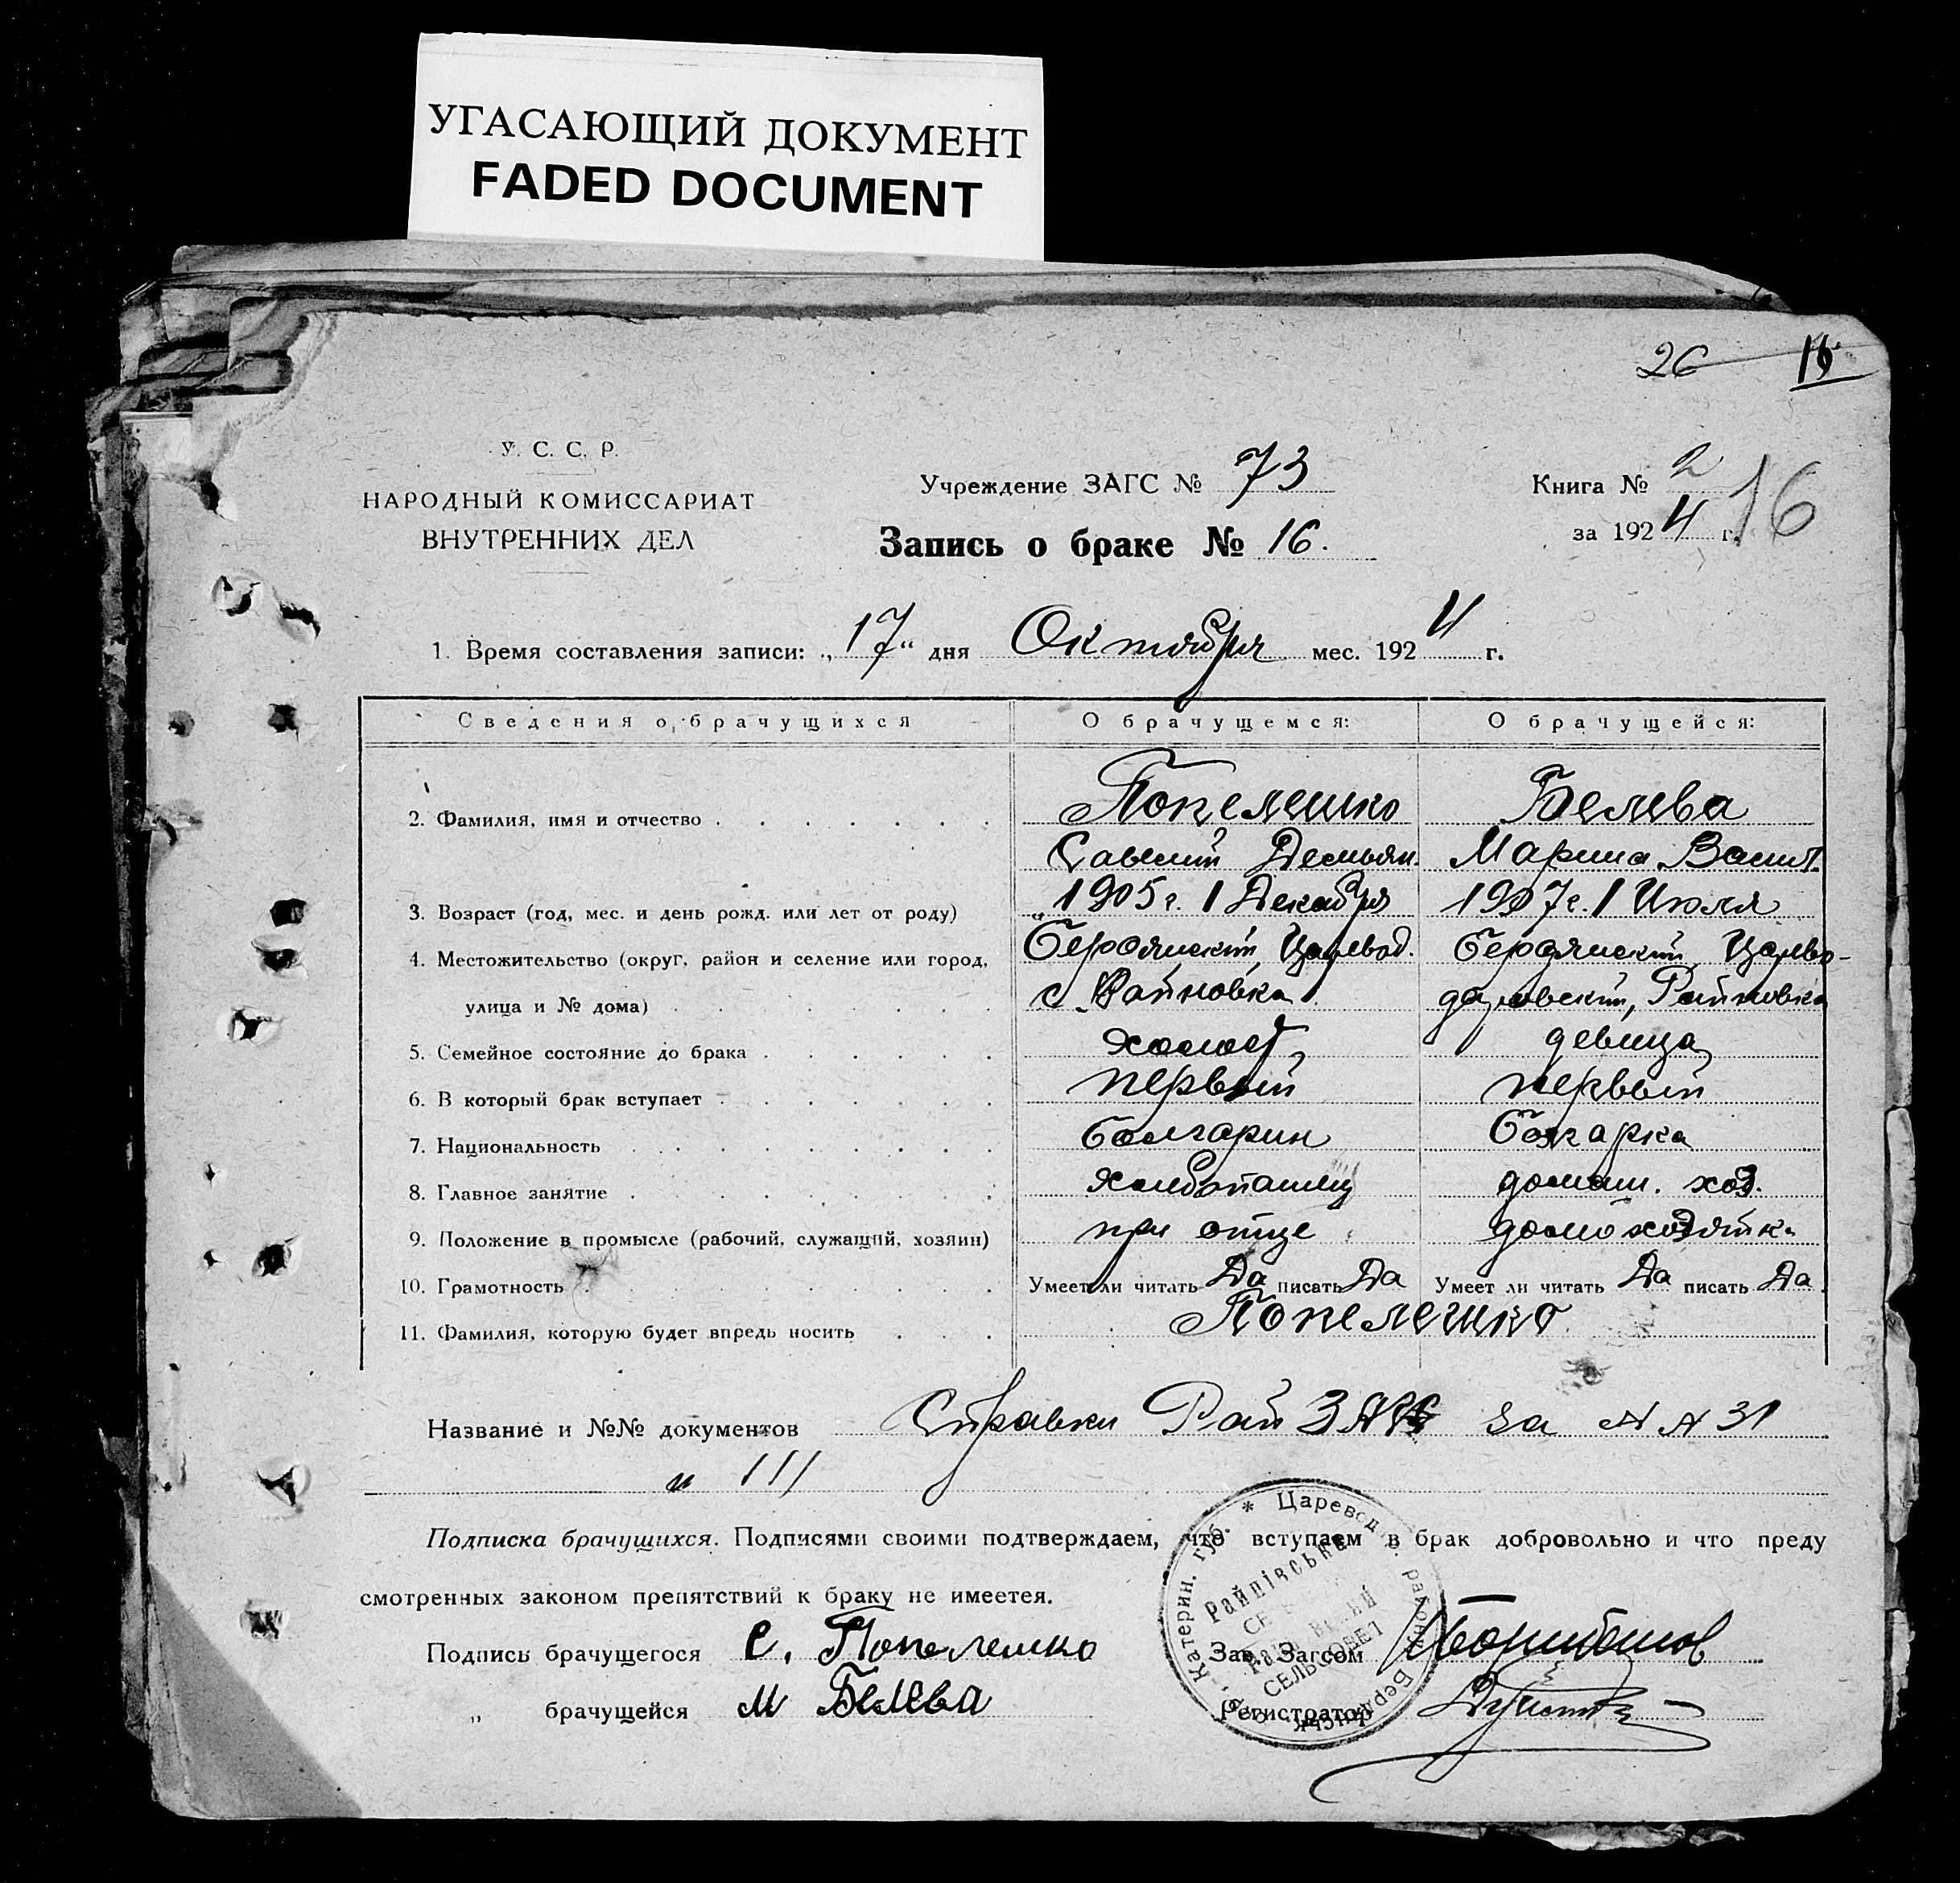 УГАСАЮЩИЙ ДОКУМЕНТ
FADED DOCUMENT
26
У. С. С. Р.
НАРОДНЫЙ КОМИССАРИАТ
ВНУТРЕННИХ ДЕЛ
Учреждение ЗАГС № 73
Запись о браке № 16.
Книга № 2
за 1924 г.
16
1. Время составления записи: „17“ дня Октября мес. 1924 г.
Сведения о брачущихся О брачущемся: О брачущейся:
2. Фамилия, имя и отчество Попелешко Белева
Савелий Демьян. Марина Васил.
3. Возраст (год, мес. и день рожд. или лет от роду) 1905 г. 1 Декабря 1907 г. 1 Июля
4. Местожительство (округ, район и селение или город, Бердянский, Царевод. Бердянский, Царево-
улица и № дома) с. Райновка даровский, Райновка
5. Семейное состояние до брака холост, девица
6. В который брак вступает первый первый
7. Национальность болгарин болгарка
8. Главное занятие хлебопашец домаш. хоз.
9. Положение в промысле (рабочий, служащий, хозяин) при отце домохозяйка
10. Грамотность Умеет ли читать Да писать Да Умеет ли читать Да писать Да
11. Фамилия, которую будет впредь носить Попелешко
Название и №№ документов Справки Рай за № № 31
и 111
Подписка брачущихся. Подписями своими подтверждаем, что вступаем в брак добровольно и что преду
смотренных законом препятствий к браку не имеется.
Подпись брачущегося С. Попелешко Зав. Загсом
„ брачущейся М Белева Регистратор
Катерин. губ. * Царевод. району Бердянськ.
Райнівська
СЕЛЬСОВЕТ